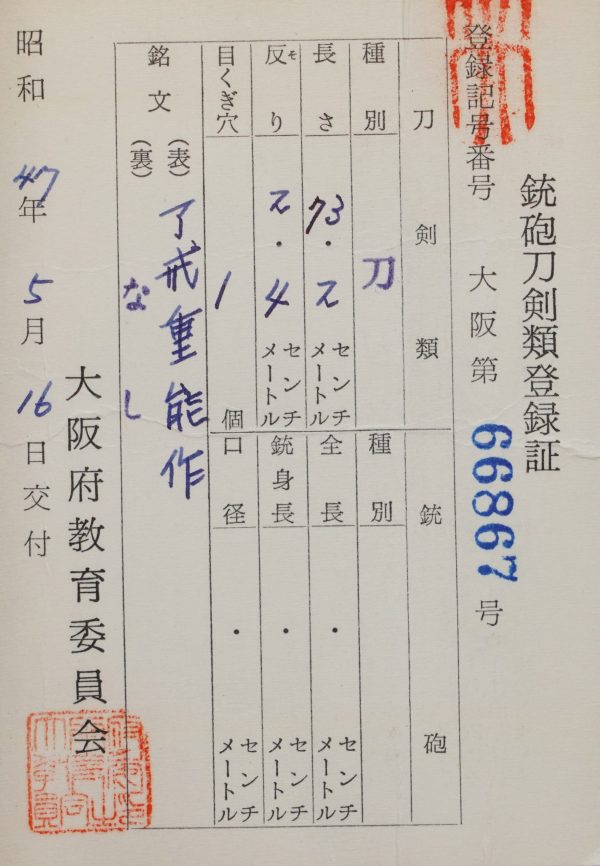 銃砲刀剣類登録証
登録記号番号 大阪第 66867 号
刀剣類
種別 刀
長さ 73.2 センチメートル
反り 2.4 センチメートル
ソ
目くぎ穴 1 個
銃砲
種別
全長 . センチメートル
銃身長 . センチメートル
口径 . センチメートル
銘文 (表) 了戒重能作
(裏) なし
昭和 47 年 5 月 16 日交付
大阪府教育委員会